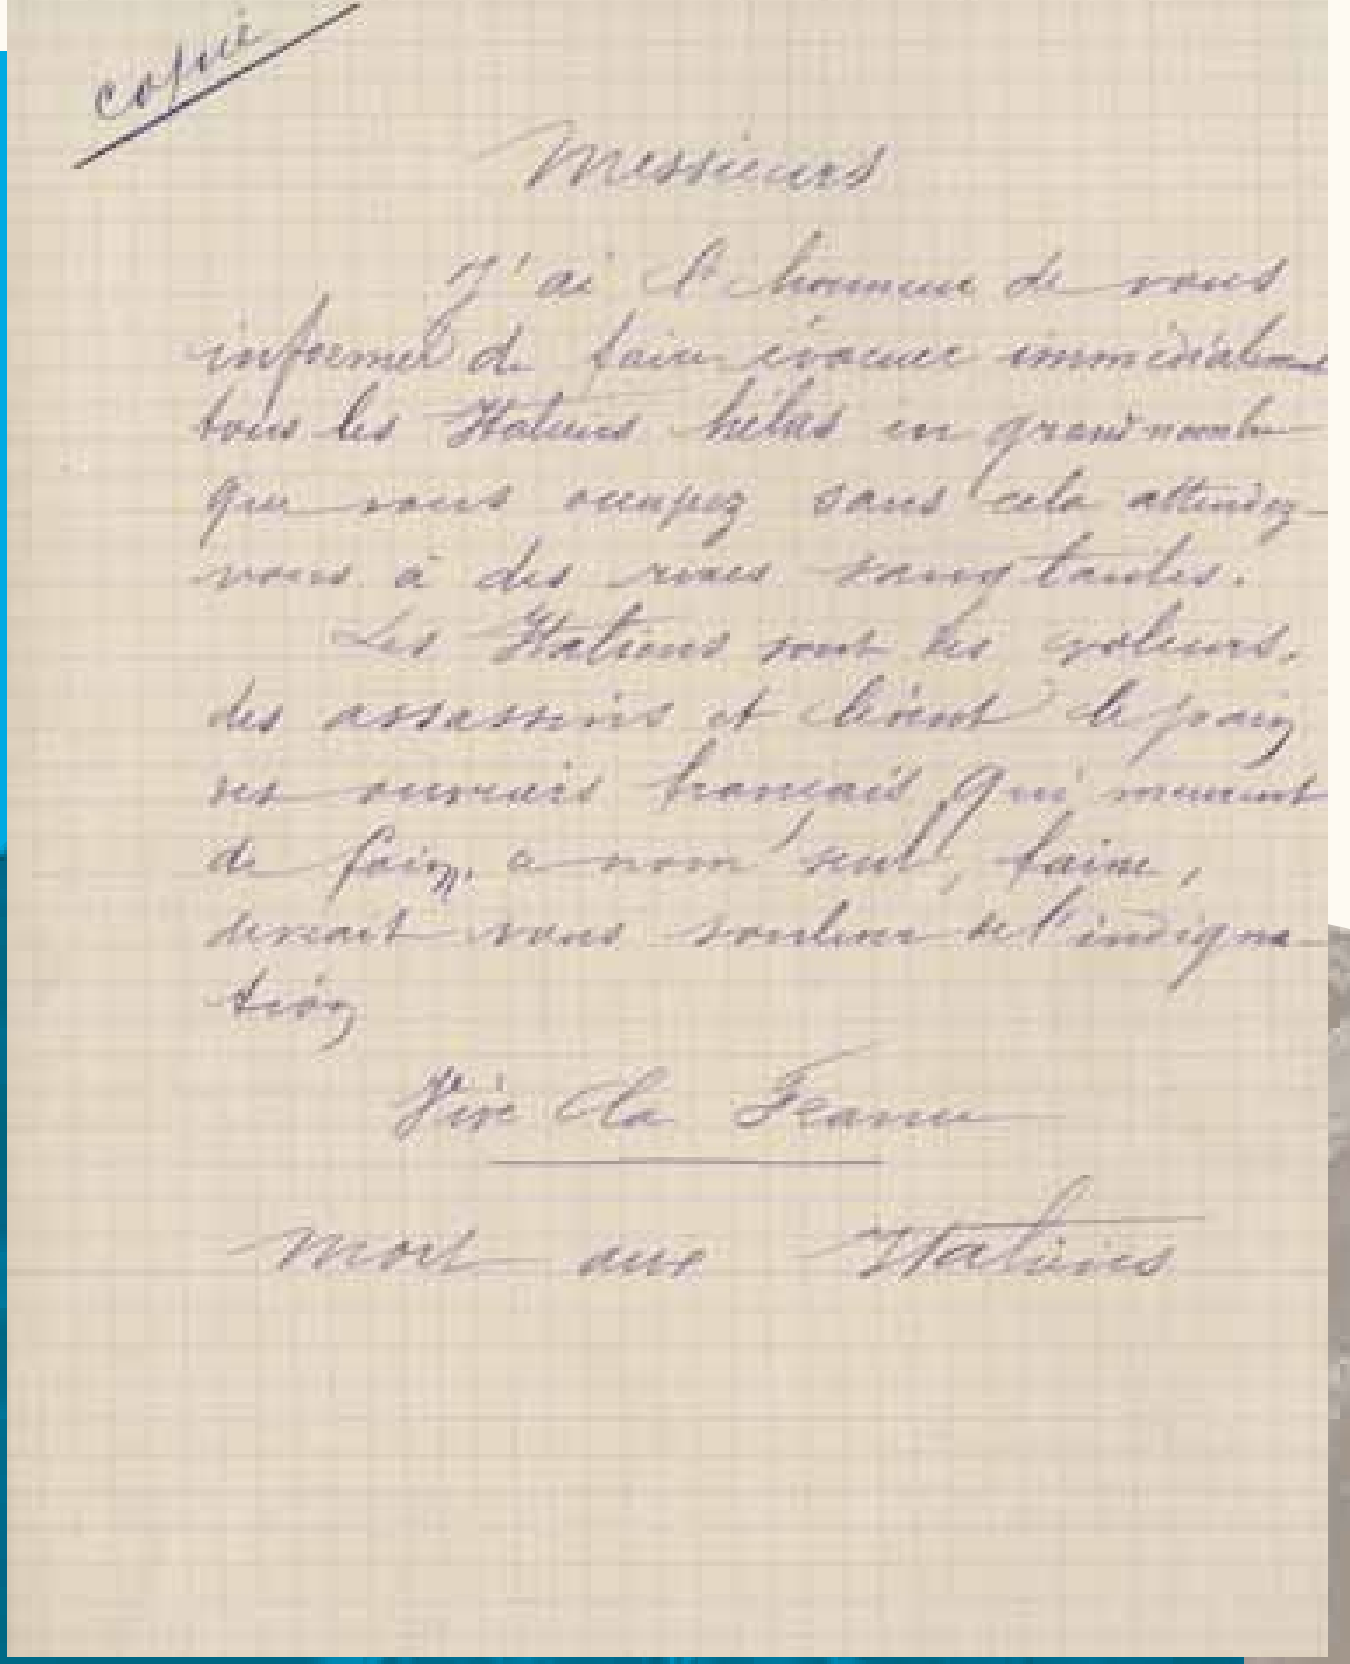 copie
Messieurs
J'ai l'honneur de vous
informer de faire évacuer immédiatement
tous les Italiens hélas en grand nombre
que vous occupez sans cela attendez-
vous à des rixes sangtantes.
Les Italiens sont des voleurs,
des assassins et le pain
des ouvriers français qui meurent
de faim, ce nom seul, faim,
devrait vous soulever de l'indigna
tion
Vive la France
Mort aux Italiens